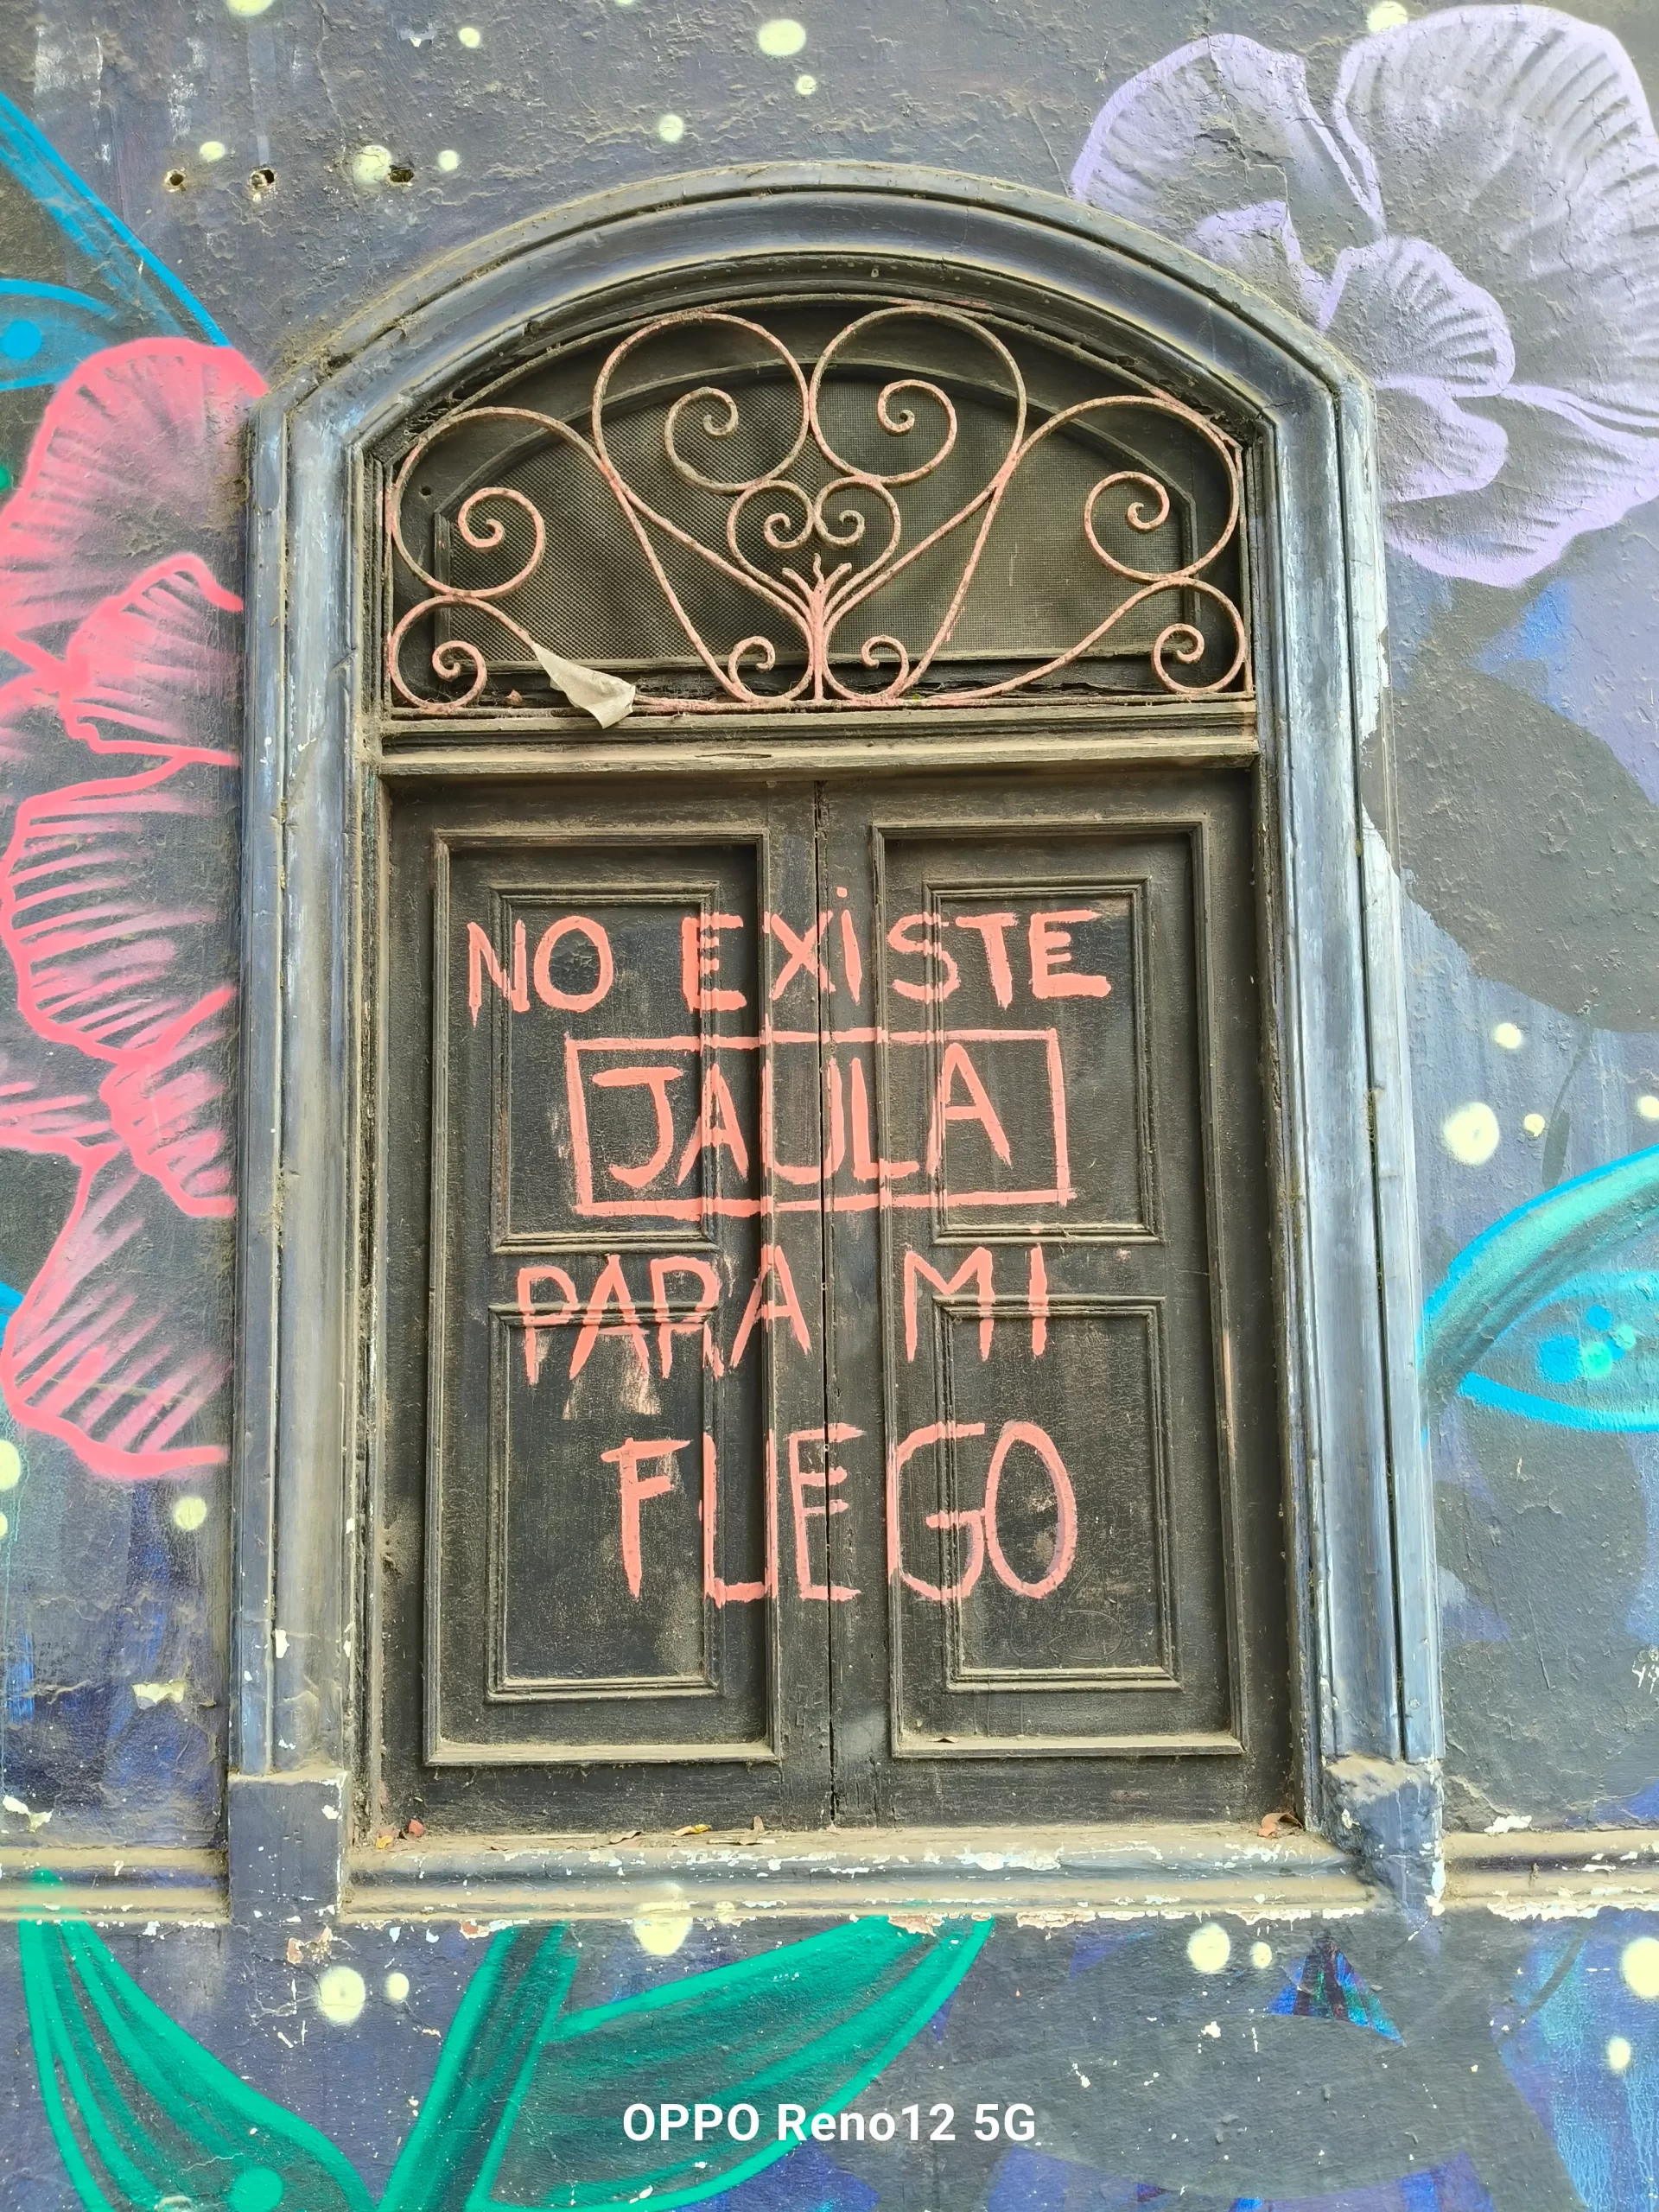 NO EXiSTE
JAULA
PARA Mi
FUEGO
OPPO Reno12 5G